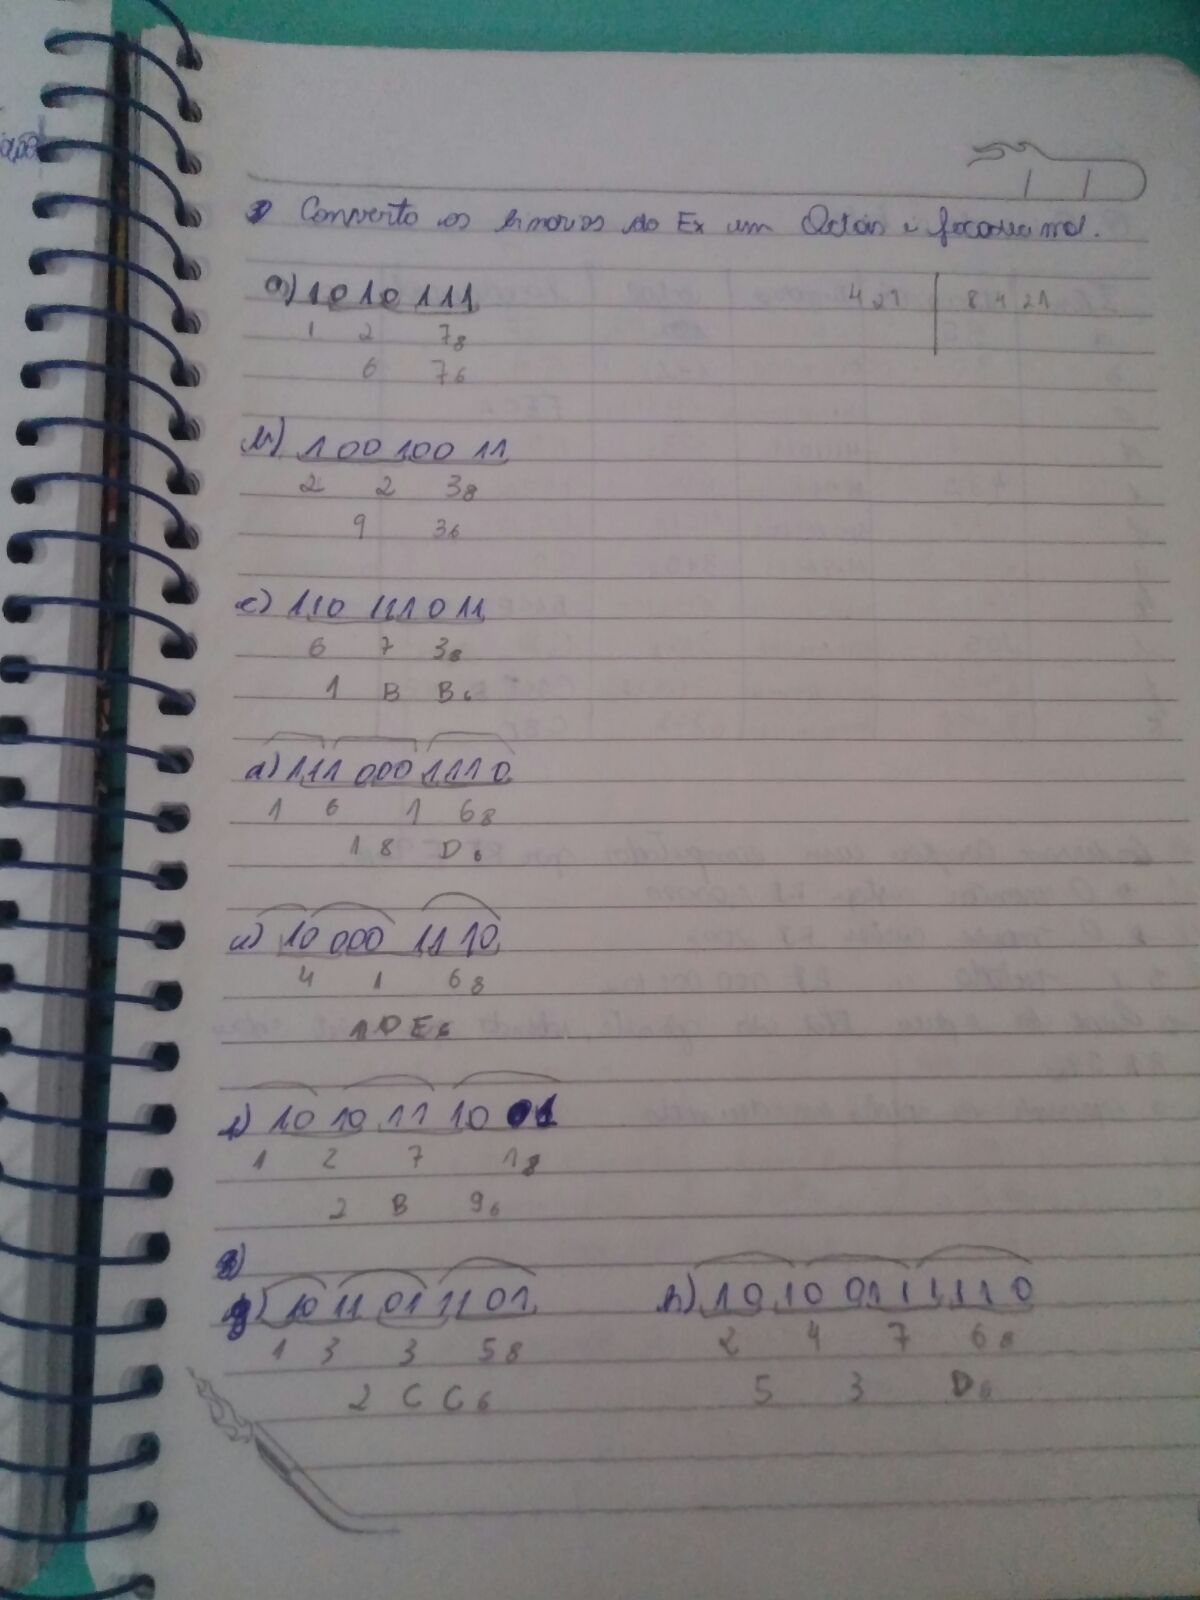 Converto os binarios do Ex em Octal e
a) 1010111
4 2 1 | 8 4 2 1
1 2 7 8
6 7 6
b) 100 100 11
2 2 3 8
9 3 6
c) 110 111 0 11
6 7 3 8
1 B B 6
d) 111 000 111 0
1 6 1 6 8
1 8 D 6
e) 10 000 11 10
4 1 6 8
1 0 E 6
f) 10 10 11 10 01
1 2 7 1 8
2 B 9 6
g) 10 11 01 11 01
1 3 3 5 8
2 C C 6
h) 10 10 011 1110
2 4 7 6 8
5 3 D 6